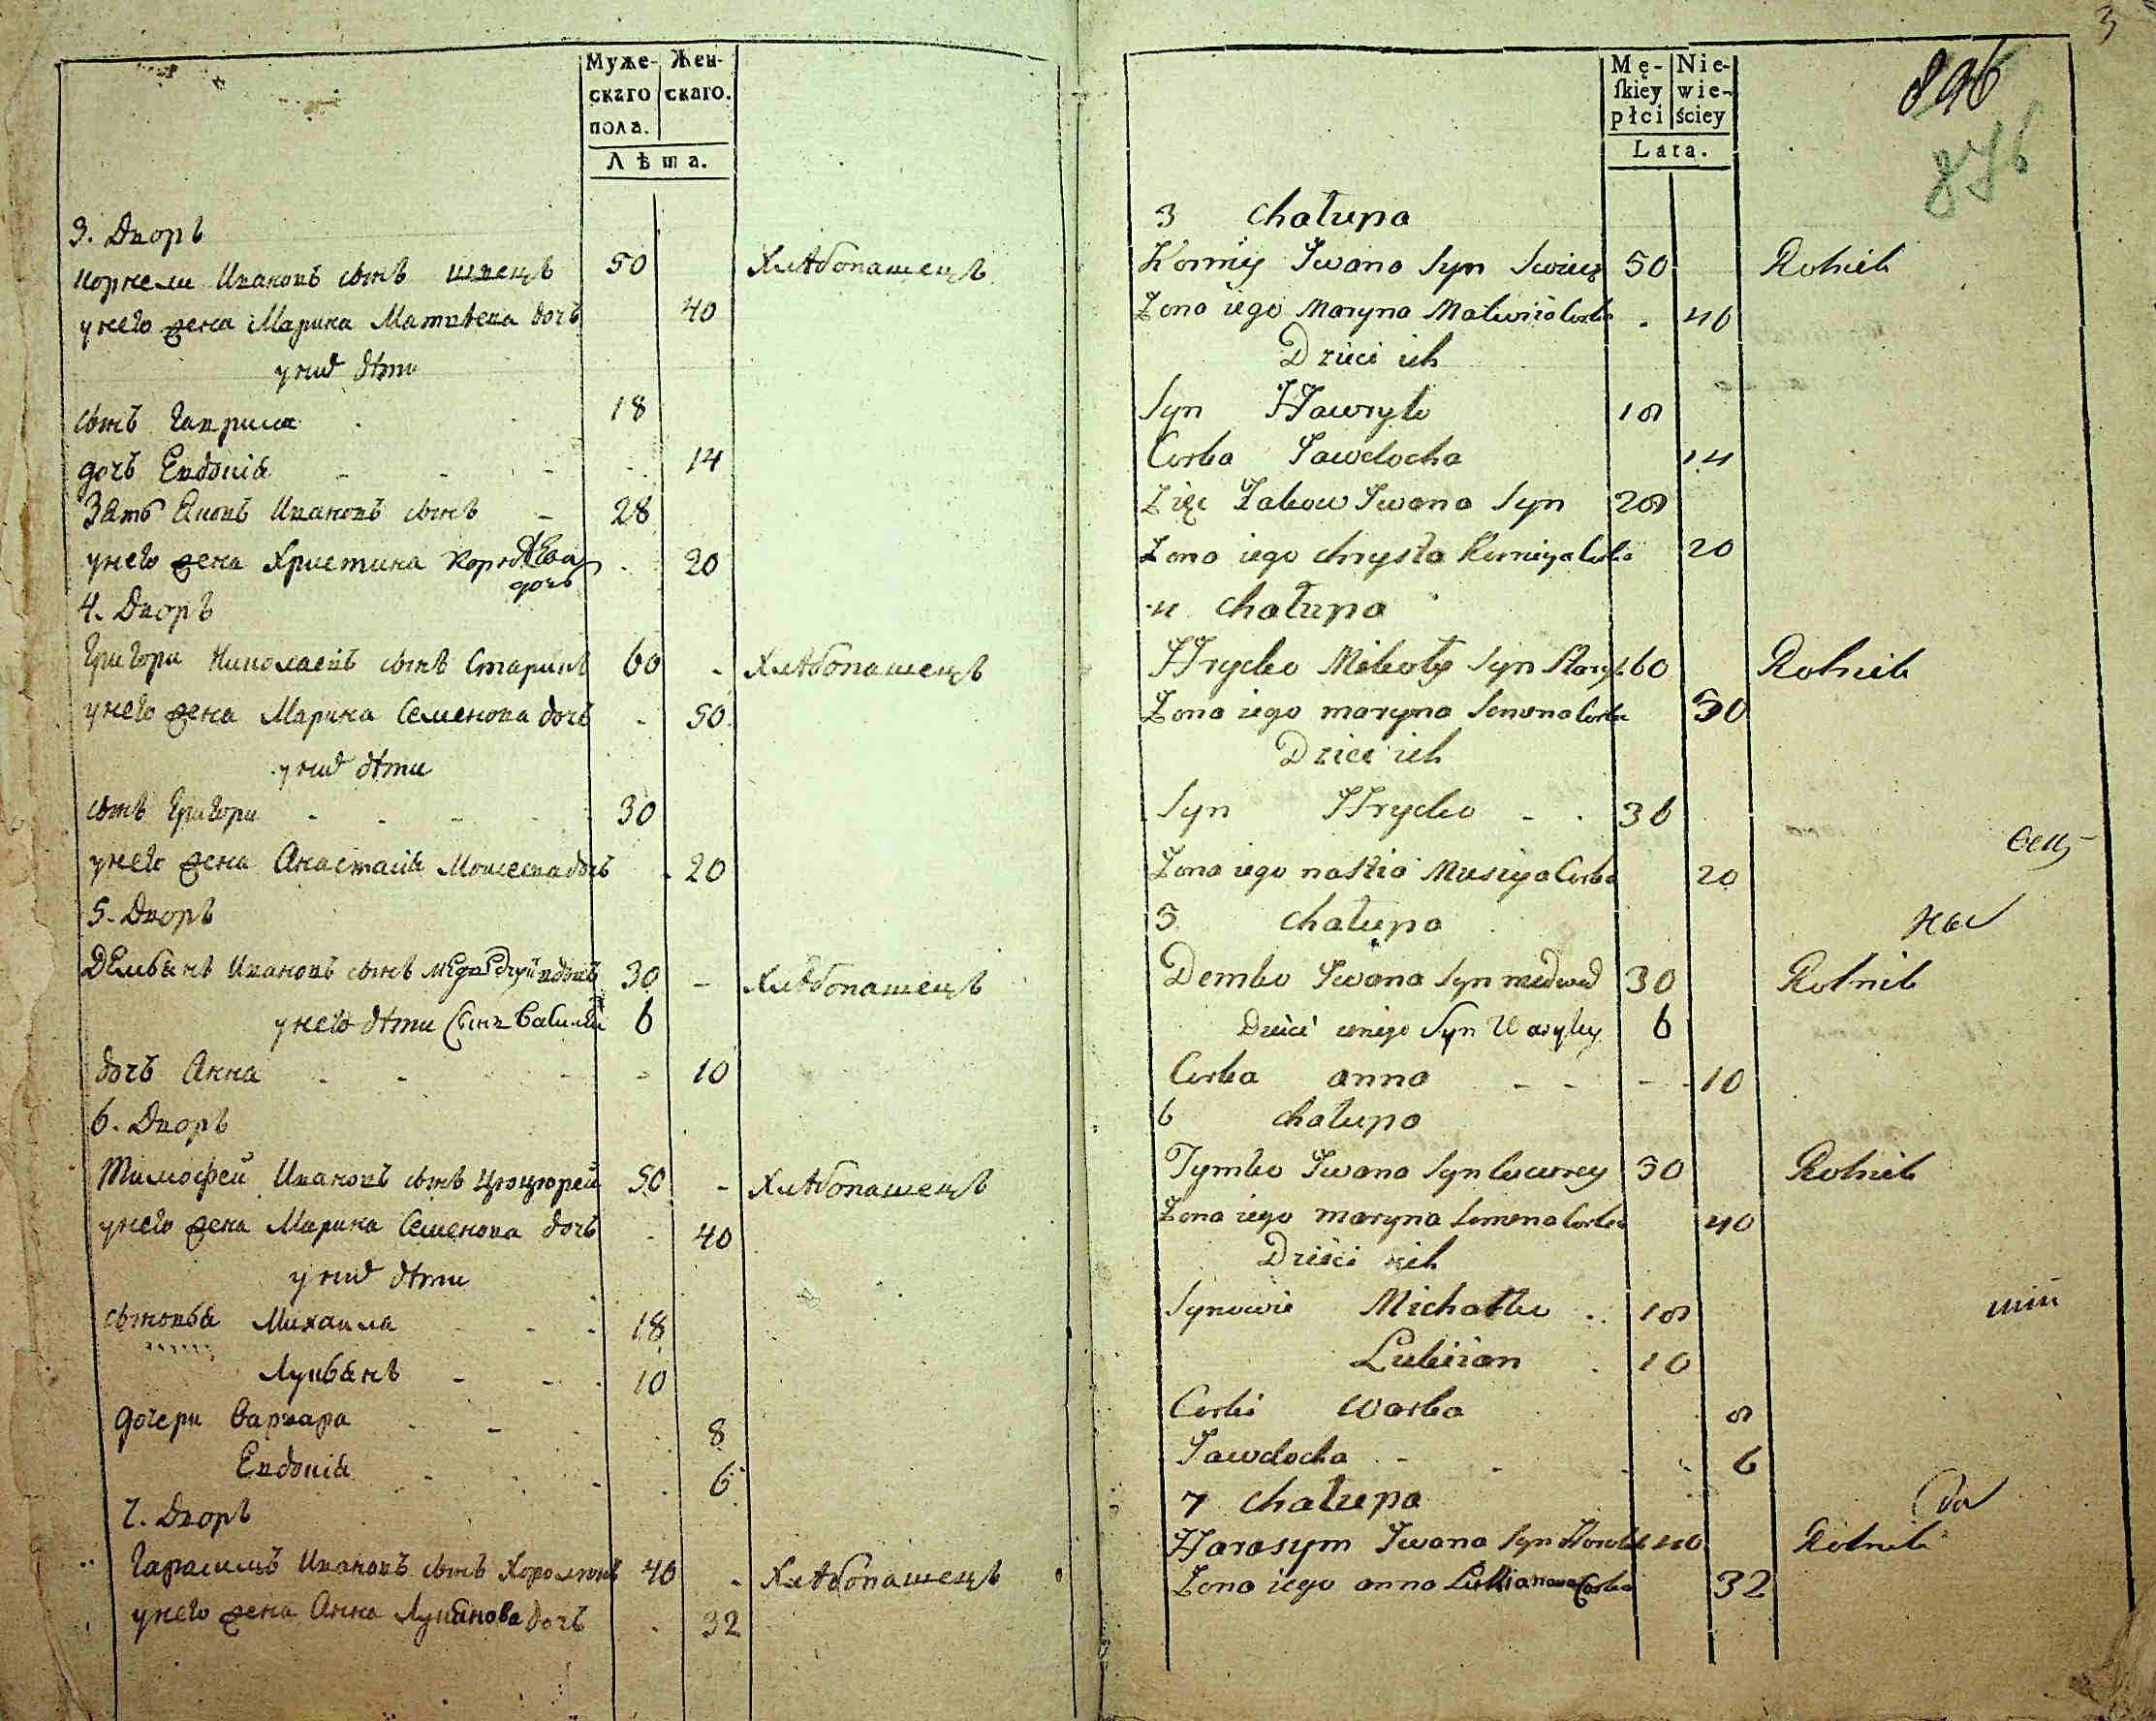 Муже-
скаго
пола.
Жен-
скаго.
Лѣта.
3. Дворъ
Корнеи Ивановъ сынъ швецъ 50 Хлѣбопашецъ
у него жена Марина Матвѣева дочь 40
у них дѣти
сынъ Гаврила 18
дочь Евдокiя 14
Зять Яковъ Ивановъ сынъ 28
у него жена Христина Корнѣева дочь 20
4. Дворъ
Григори Николаевъ сынъ Старикъ 60 Хлѣбопашецъ
у него жена Марина Семенова дочь 50
у них дѣти
сынъ Григори 30
у него жена Анастасiя Моисеева дочь 20
5. Дворъ
Демьянъ Ивановъ сынъ вдовъ 30 Хлѣбопашецъ
у него дѣти сынъ Василий 6
дочь Анна 10
6. Дворъ
Тимофей Ивановъ сынъ Цюцюрей 50 Хлѣбопашецъ
у него жена Марина Семенова дочь 40
у них дѣти
сыновья Михаила 18
Лукьянъ 10
дочери Варвара 8
Евдокiя 6
7. Дворъ
Гарасимъ Ивановъ сынъ 40 Хлѣбопашецъ
у него жена Анна Лукянова дочь 32
3
896
876
Mę-
ſkiey
płci
Nie-
wie-
ściey
Lata.
3 chałupa
Korniy Iwana Syn Szwiec 50 Rolnik
Zona iego Maryna Matwiia Corka 40
Dzieci ich
Syn Hawryło 18
Corka Jawdocha 14
Zięc Jakow Iwana Syn 28
Zona iego chrysta Korniya Corka 20
4 chałupa
Hrycko Mikoły Syn Staryk 60 Rolnik
Zona iego maryna Semena Corka 50
Dzieci ich
Syn Hrycko 30
Zona iego nastia Musiya Corka 20
5 chałupa
Demko Iwana Syn medwed 30 Rolnik
Dzieci u niego Syn Wasyley 6
Corka anna 10
6 chałupa
Tymko Iwana Syn 50 Rolnik
Zona iego maryna Semena Corka 40
Dzieci ich
Synowie Michałko 18
Lukiian 10
Corki warka 8
Jawdocha 6
7 chałupa
Harasym Iwana Syn 40 Rolnik
Zona iego anna Lukkianowa Corka 32